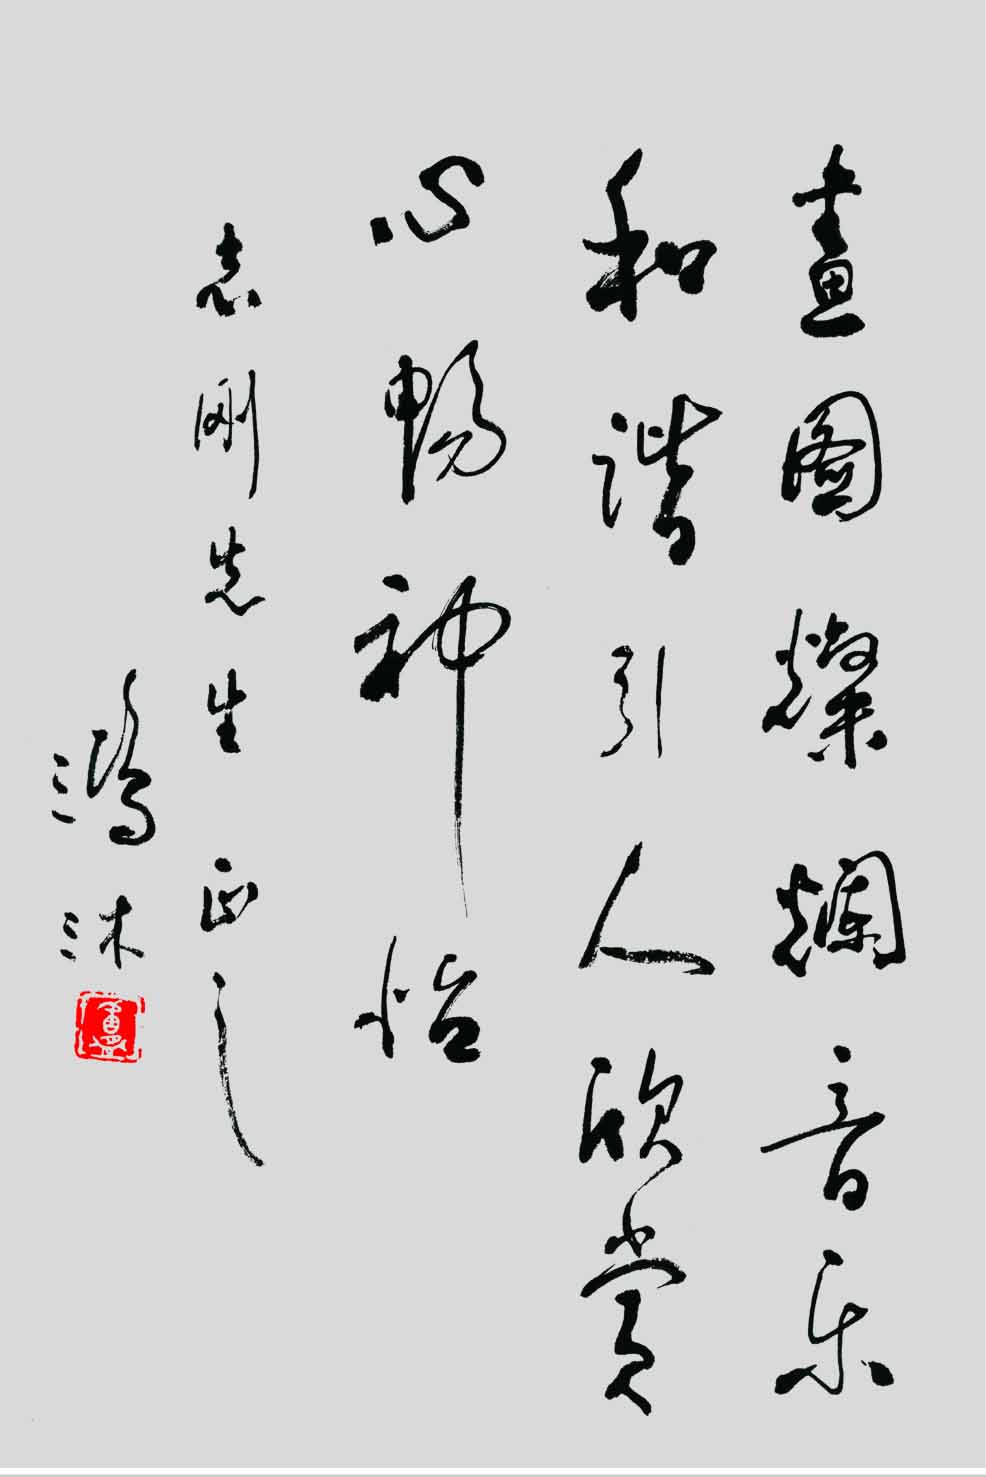 畫圖燦爛音乐
和諧引人欣赏
心暢神怡
志刚先生正之
鴻沐